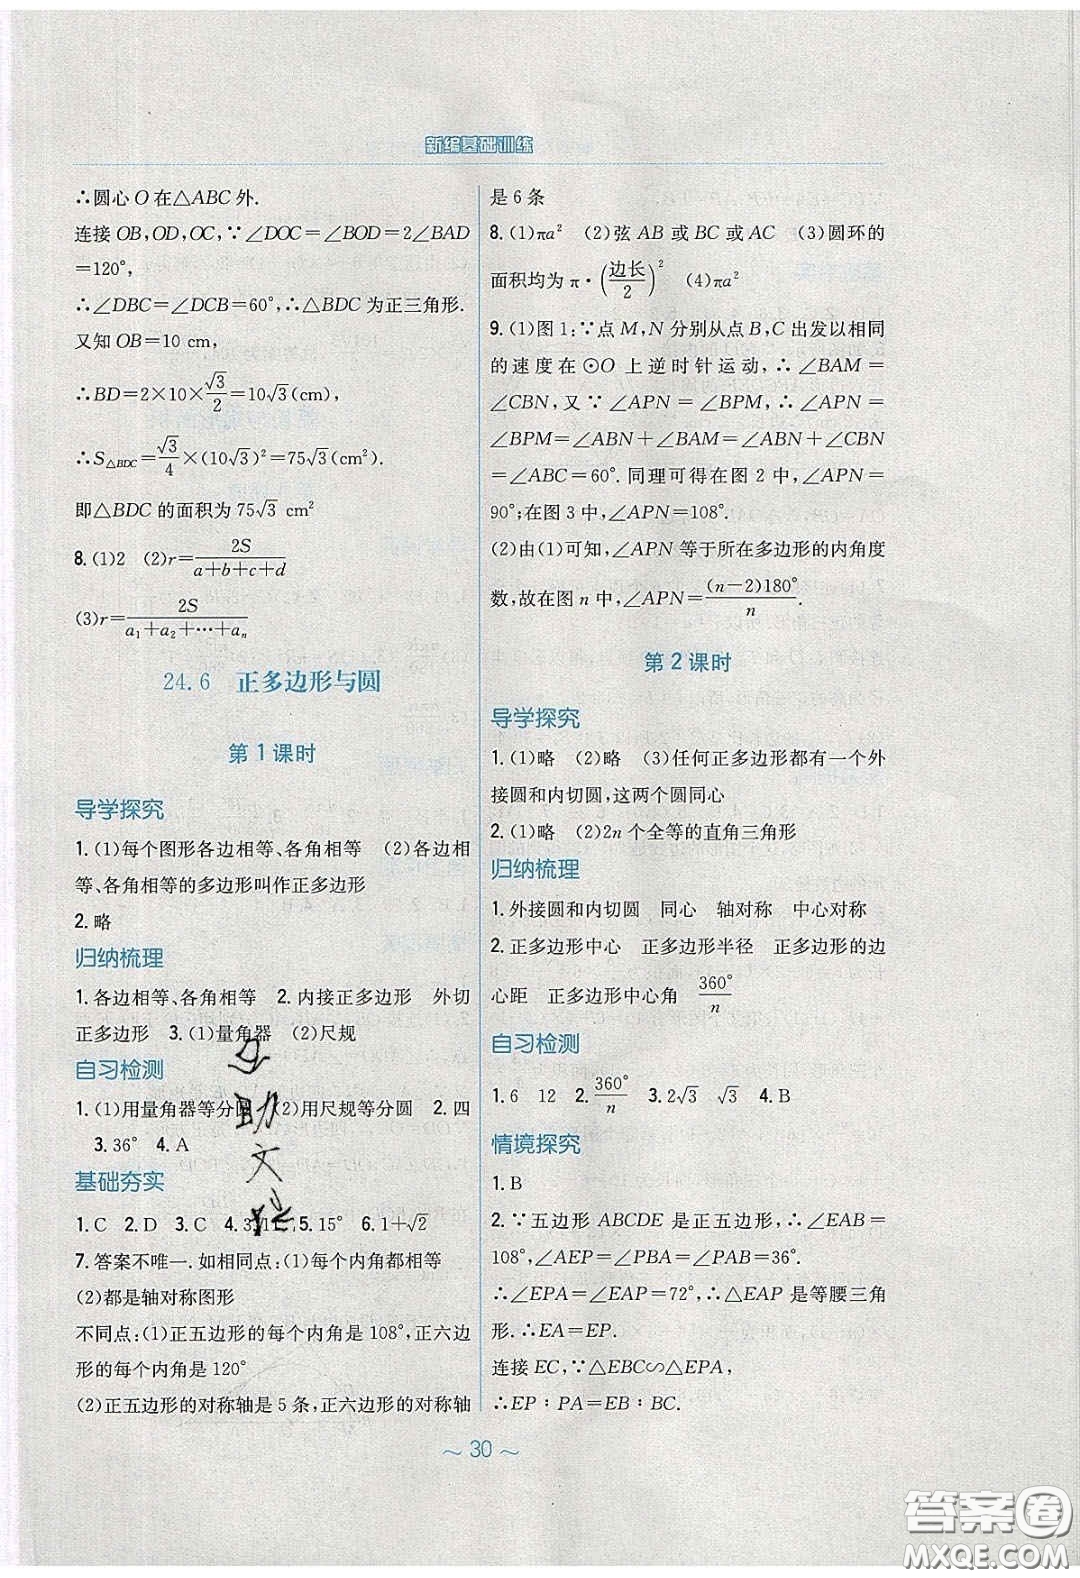 新编基础训练
∴圆心O在△ABC外.
连接OB,OD,OC,∵∠DOC=∠BOD=2∠BAD
=120°,
∴∠DBC=∠DCB=60°,∴△BDC为正三角形.
又知OB=10 cm,
∴BD=2×10×√3/2=10√3(cm),
∴S△BDC=√3/4×(10√3)²=75√3(cm²).
即△BDC的面积为75√3 cm²
8.(1)2 (2)r=2S/(a+b+c+d)
(3)r=2S/(a₁+a₂+⋯+aₙ)
24.6 正多边形与圆
第1课时
导学探究
1.(1)每个图形各边相等、各角相等 (2)各边相
等、各角相等的多边形叫作正多边形
2.略
归纳梳理
1.各边相等、各角相等 2.内接正多边形 外切
正多边形 3.(1)量角器 (2)尺规
自习检测
1.(1)用量角器等分圆 (2)用尺规等分圆 2.四
3.36° 4.A
基础夯实
1.C 2.D 3.C 4.3 5.15° 6.1+√2
7.答案不唯一.如相同点:(1)每个内角都相等
(2)都是轴对称图形
不同点:(1)正五边形的每个内角是108°,正六边
形的每个内角是120°
(2)正五边形的对称轴是5条,正六边形的对称轴
是6条
8.(1)πa² (2)弦AB或BC或AC (3)圆环的
面积均为π·(边长/2)² (4)πa²
9.(1)图1:∵点M,N分别从点B,C出发以相同
的速度在⊙O上逆时针运动,∴∠BAM=
∠CBN,又∵∠APN=∠BPM,∴∠APN=
∠BPM=∠ABN+∠BAM=∠ABN+∠CBN
=∠ABC=60°.同理可得在图2中,∠APN=
90°;在图3中,∠APN=108°.
(2)由(1)可知,∠APN等于所在多边形的内角度
数,故在图n中,∠APN=(n-2)180°/n.
第2课时
导学探究
1.(1)略 (2)略 (3)任何正多边形都有一个外
接圆和内切圆,这两个圆同心
2.(1)略 (2)2n个全等的直角三角形
归纳梳理
1.外接圆和内切圆 同心 轴对称 中心对称
2.正多边形中心 正多边形半径 正多边形的边
心距 正多边形中心角 360°/n
自习检测
1.6 12 2.360°/n 3.2√3 √3 4.B
情境探究
1.B
2.∵五边形ABCDE是正五边形,∴∠EAB=
108°,∠AEP=∠PBA=∠PAB=36°.
∴∠EPA=∠EAP=72°,∴△EAP是等腰三角
形.∴EA=EP.
连接EC,∵△EBC∽△EPA,
∴EP∶PA=EB∶BC.
~ 30 ~
答案圈
MXQE.COM